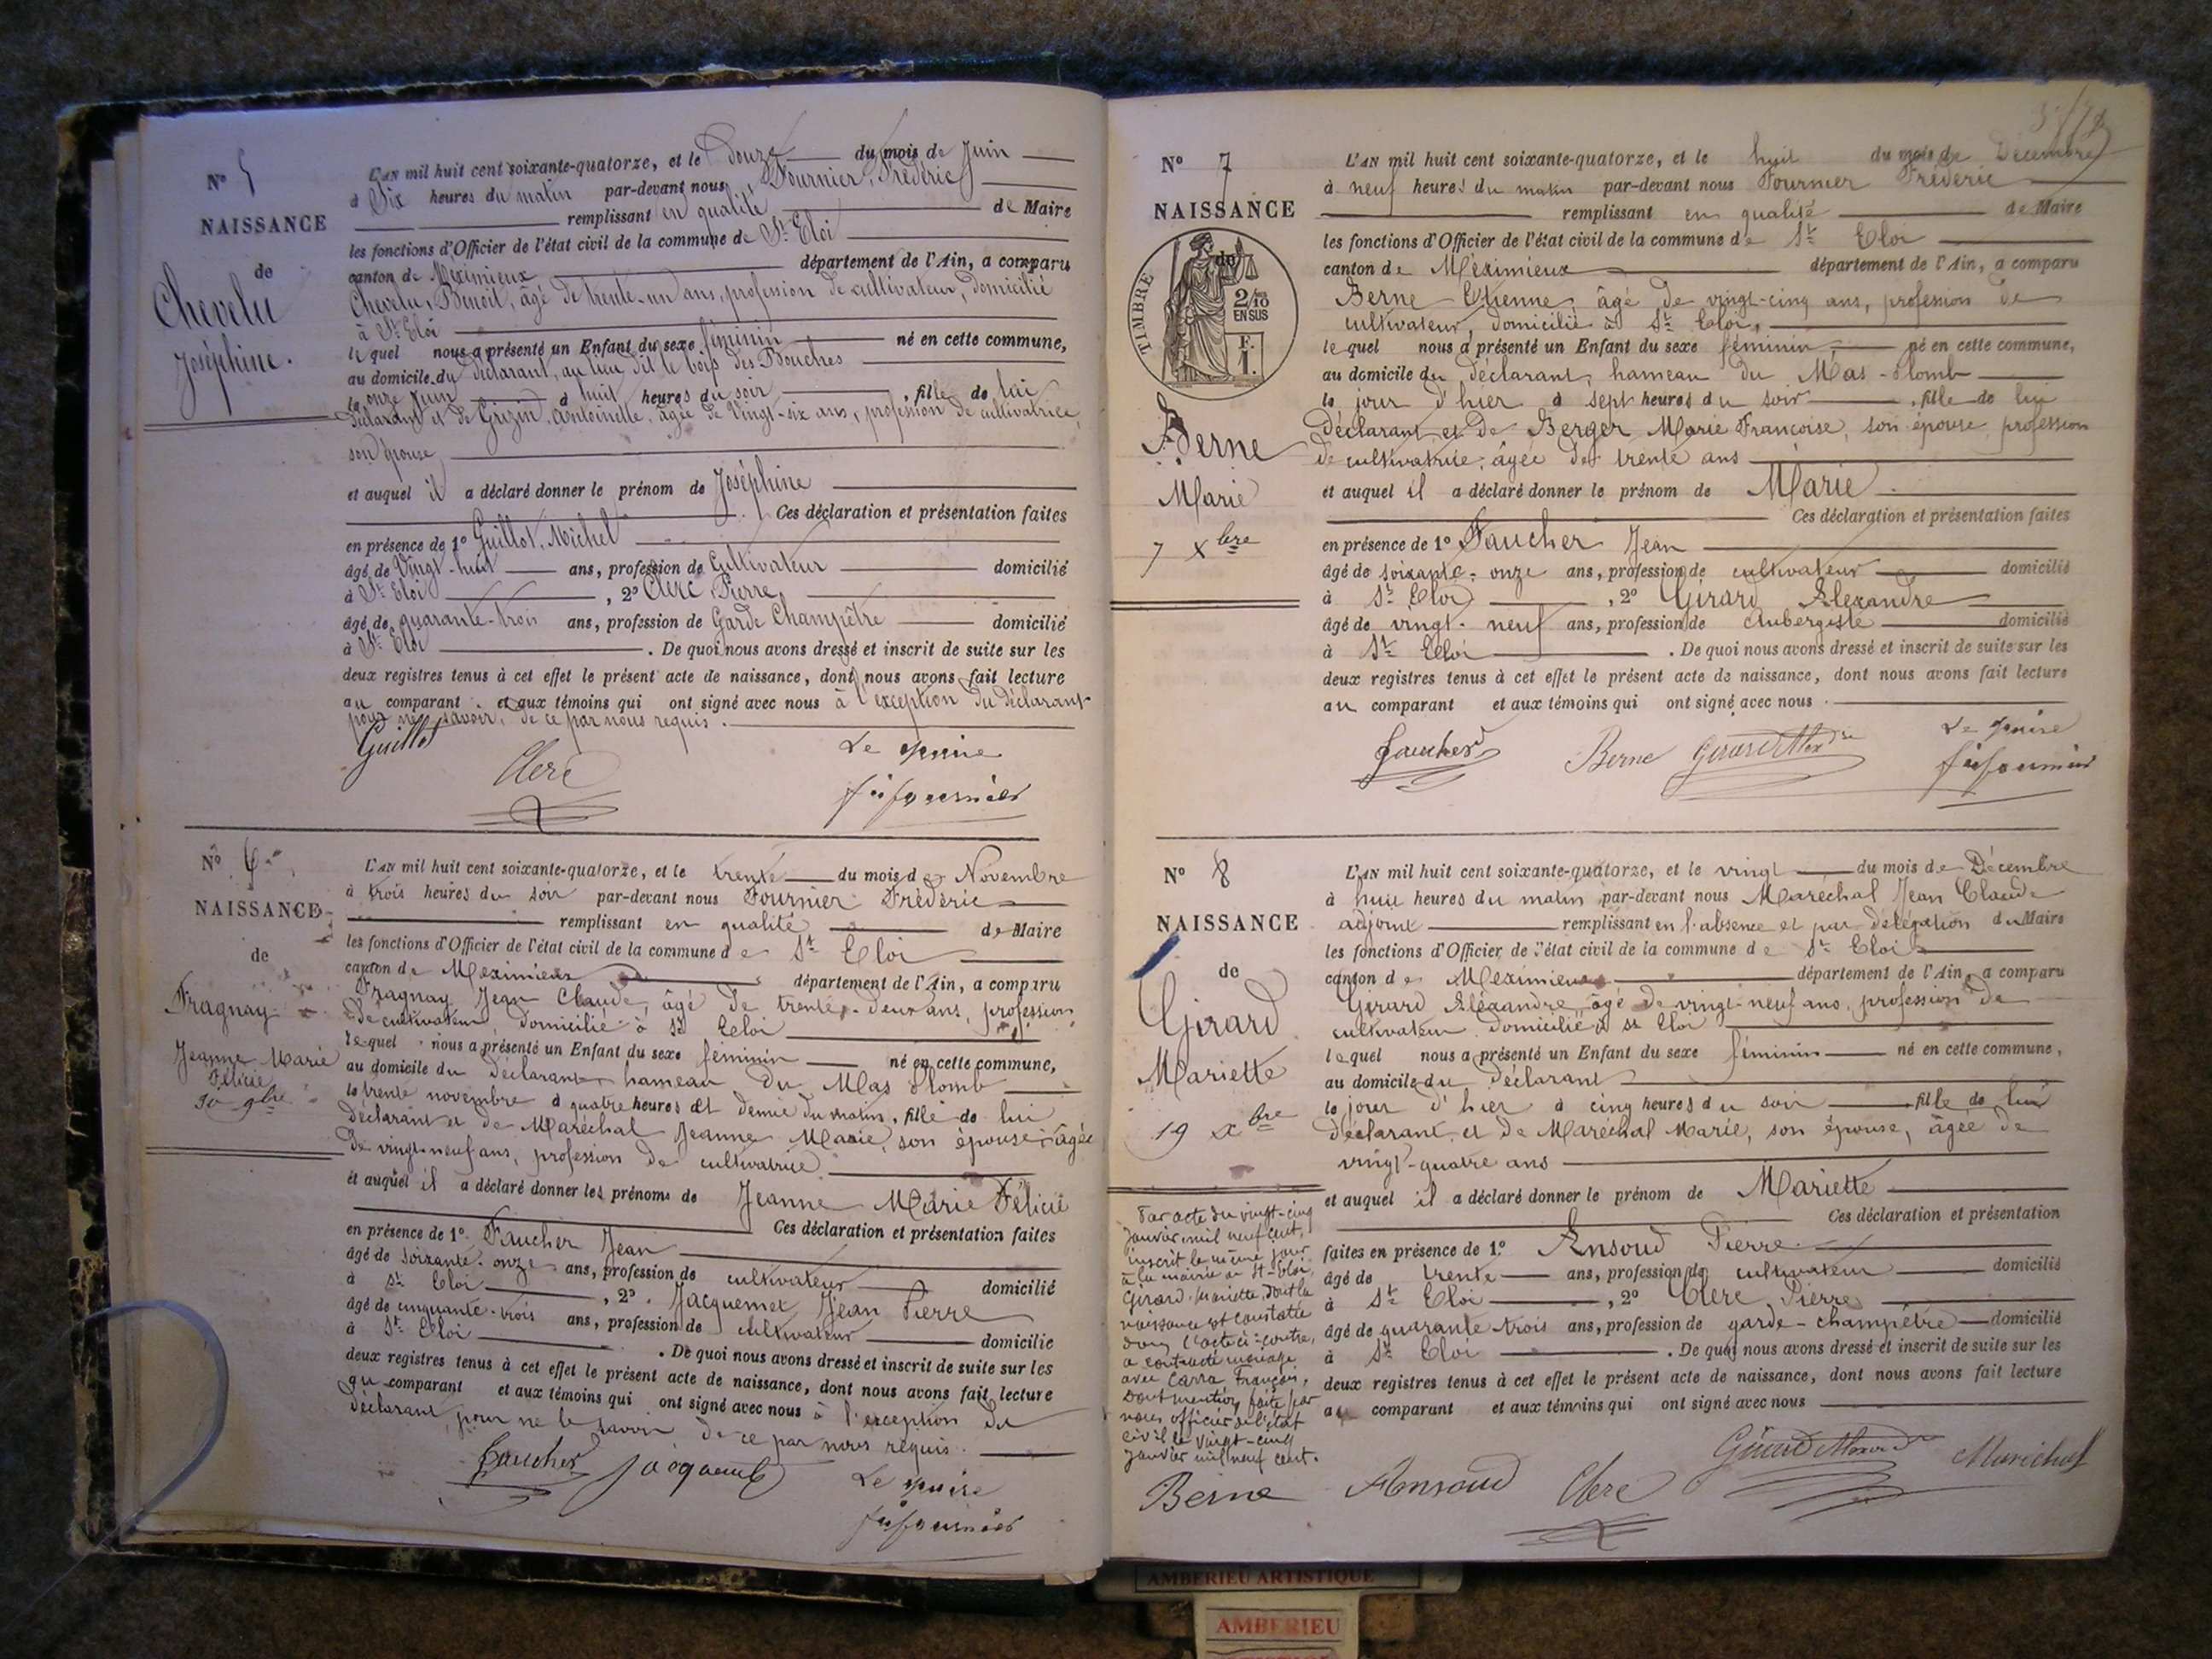 N° 5
NAISSANCE
de
Chevelu
Joséphine.
L'AN mil huit cent soixante-quatorze, et le douze du mois de Juin
à Six heures du matin par-devant nous Fournier, Frédéric
remplissant en qualité de Maire
les fonctions d'Officier de l'état civil de la commune de St Eloi
canton de Meximieux département de l'Ain, a comparu
Chevelu, Benoit, âgé de trente-un ans, profession de cultivateur, domicilié
à St Eloi
lequel nous a présenté un Enfant du sexe féminin né en cette commune,
au domicile du déclarant, au lieu dit le bois des Bouches
le onze Juin à huit heures du soir, fille de lui
déclarant et de Grizin Antoinette, âgée de vingt-six ans, profession de cultivatrice,
son épouse
et auquel il a déclaré donner le prénom de Joséphine
. Ces déclaration et présentation faites
en présence de 1° Guillot, Michel
âgé de Vingt-huit ans, profession de Cultivateur domicilié
à St Eloi, 2° Clerc Pierre
âgé de quarante-trois ans, profession de Garde Champêtre domicilié
à St Eloi. De quoi nous avons dressé et inscrit de suite sur les
deux registres tenus à cet effet le présent acte de naissance, dont nous avons fait lecture
au comparant et aux témoins qui ont signé avec nous à l'exception du déclarant
pour ne savoir, de ce par nous requis.
Guillot Clerc Le Maire
N° 6
NAISSANCE
de
Fragnay
Jeanne Marie
Félicie
30 9bre
L'AN mil huit cent soixante-quatorze, et le trente du mois de Novembre
à trois heures du soir par-devant nous Fournier Frédéric
remplissant en qualité de Maire
les fonctions d'Officier de l'état civil de la commune de St Eloi
canton de Meximieux département de l'Ain, a comparu
Fragnay Jean Claude, âgé de trente-deux ans, profession
de cultivateur, domicilié à St Eloi
lequel nous a présenté un Enfant du sexe féminin né en cette commune,
au domicile du déclarant hameau du Mas Plomb
le trente novembre à quatre heures et demie du matin, fille de lui
déclarant et de Maréchal Jeanne Marie, son épouse, âgée
de vingt-neuf ans, profession de cultivatrice
et auquel il a déclaré donner les prénoms de Jeanne Marie Félicie
Ces déclaration et présentation faites
en présence de 1° Faucher Jean
âgé de soixante-onze ans, profession de cultivateur domicilié
à St Eloi, 2° Jacquemet Jean Pierre
âgé de cinquante-trois ans, profession de cultivateur domicilié
à St Eloi. De quoi nous avons dressé et inscrit de suite sur les
deux registres tenus à cet effet le présent acte de naissance, dont nous avons fait lecture
au comparant et aux témoins qui ont signé avec nous à l'exception du
déclarant pour ne le savoir de ce par nous requis.
Faucher Jacquemet Le Maire
N° 7
NAISSANCE
de
TIMBRE
2/10
EN SUS
F.
1.
Berne
Marie
7 Xbre
L'AN mil huit cent soixante-quatorze, et le huit du mois de Décembre
à neuf heures du matin par-devant nous Fournier Fréderic
remplissant en qualité de Maire
les fonctions d'Officier de l'état civil de la commune de St Eloi
canton de Méximieux département de l'Ain, a comparu
Berne Etienne, âgé de vingt-cinq ans, profession de
cultivateur, domicilié à St Eloi,
lequel nous a présenté un Enfant du sexe féminin, né en cette commune,
au domicile du déclarant, hameau du Mas-Plomb
le jour d'hier à sept heures du soir, fille de lui
déclarant, et de Berger Marie Françoise, son épouse, profession
de cultivatrice, âgée de trente ans
et auquel il a déclaré donner le prénom de Marie
Ces déclaration et présentation faites
en présence de 1° Faucher Jean
âgé de soixante-onze ans, profession de cultivateur domicilié
à St Eloi, 2° Girard Alexandre
âgé de vingt-neuf ans, profession de Aubergiste domicilié
à St Eloi. De quoi nous avons dressé et inscrit de suite sur les
deux registres tenus à cet effet le présent acte de naissance, dont nous avons fait lecture
au comparant et aux témoins qui ont signé avec nous.
Faucher Berne Girard Alexdre Le Maire
N° 8
NAISSANCE
de
Girard
Mariette
19 Xbre
L'AN mil huit cent soixante-quatorze, et le vingt du mois de Décembre
à huit heures du matin par-devant nous Maréchal Jean Claude
adjoint remplissant en l'absence et par délégation du Maire
les fonctions d'Officier de l'état civil de la commune de St Eloi
canton de Meximieux département de l'Ain, a comparu
Girard Aléxandre, âgé de vingt-neuf ans, profession de
cultivateur domicilié à St Eloi
lequel nous a présenté un Enfant du sexe féminin né en cette commune,
au domicile du déclarant
le jour d'hier à cinq heures du soir fille de lui
déclarant, et de Maréchal Marie, son épouse, âgée de
vingt-quatre ans
et auquel il a déclaré donner le prénom de Mariette
Ces déclaration et présentation
faites en présence de 1° Ansoud Pierre
âgé de trente ans, profession de cultivateur domicilié
à St Eloi, 2° Clerc, Pierre
âgé de quarante-trois ans, profession de garde-champêtre domicilié
à St Eloi. De quoi nous avons dressé et inscrit de suite sur les
deux registres tenus à cet effet le présent acte de naissance, dont nous avons fait lecture
au comparant et aux témoins qui ont signé avec nous
Par acte du vingt-cinq
Janvier mil neuf cent,
inscrit le même jour
à la mairie de St-Eloi,
Girard Mariette, dont la
naissance est constatée
dans l'acte ci-contre,
a contracté mariage
avec Carra François,
Dont mention faite par
nous officier de l'état
civil le vingt-cinq
janvier mil neuf cent.
Berne Ansoud Clerc Girard Maréchal
AMBERIEU ARTISTIQUE
AMBERIEU